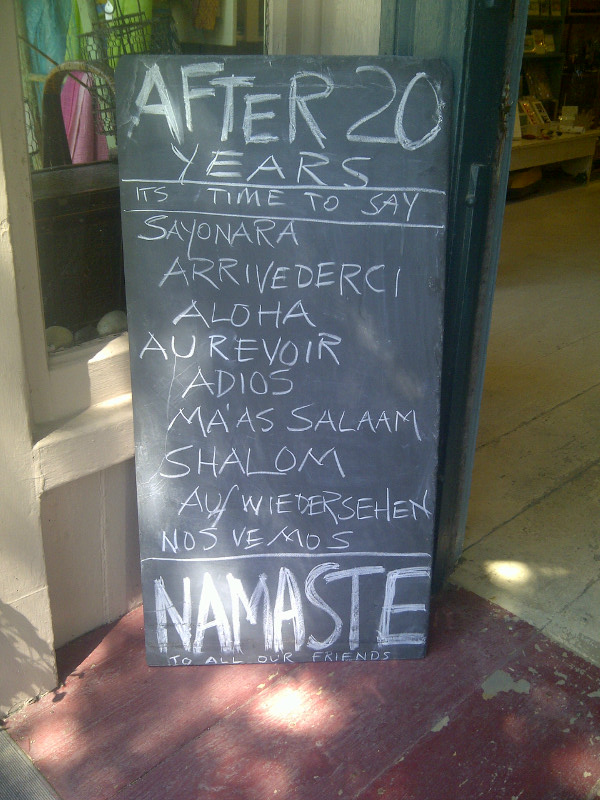 AFTER 20
YEARS
ITS TIME TO SAY
SAYONARA
ARRIVEDERCI
ALOHA
AU REVOIR
ADIOS
MA'AS SALAAM
SHALOM
AUf WIEDERSEHEN
NOS VEMOS
NAMASTE
TO ALL OUR FRIENDS